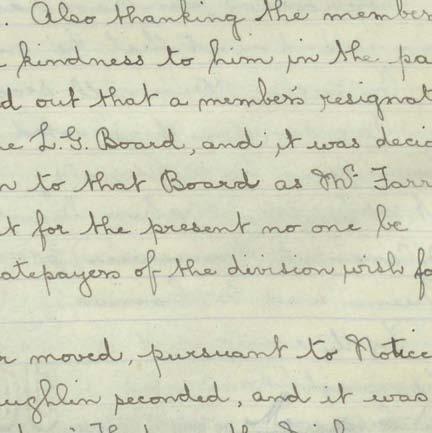 . Also thanking the member
kindness to him in the pa
d out that a member's resignat
e L.G. Board, and it was decid
n to that Board as Mr. Farr
t for the present no one be
atepayers of the division wish fo
r moved, pursuant to Notice
ughlin seconded, and it was